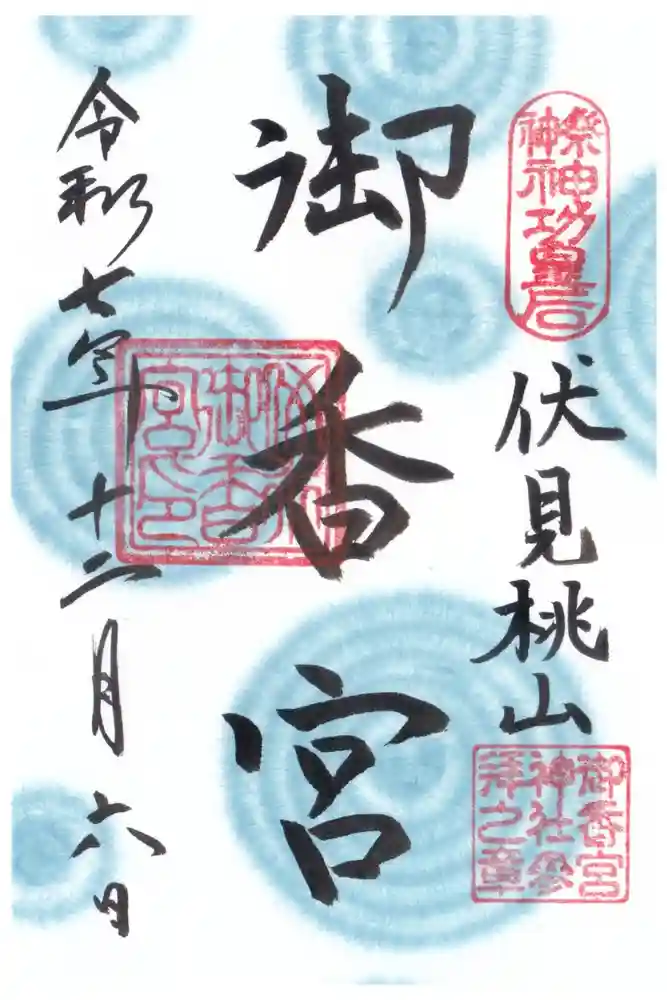 祭神
神功皇后
伏見桃山
御香宮
神社参
拝之章
御香宮
御香
宮之印
令和七年十二月六日